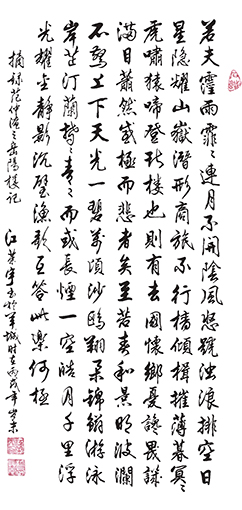 若夫霪雨霏々連月不開陰風怒號濁浪排空日
星隱耀山嶽潛形商旅不行檣傾楫摧薄暮冥々
虎嘯猿啼登斯樓也則有去國懷鄉憂讒畏譏
滿目蕭然感極而悲者矣至若春和景明波瀾
不驚上下天光一碧萬頃沙鷗翔集錦鱗游泳
岸芷汀蘭鬱々青々而或長煙一空皓月千里浮
光耀金靜影沉璧漁歌互答此樂何極
摘錄范仲淹之岳陽樓記 江英宇書於羊城時在丙戌年歲末